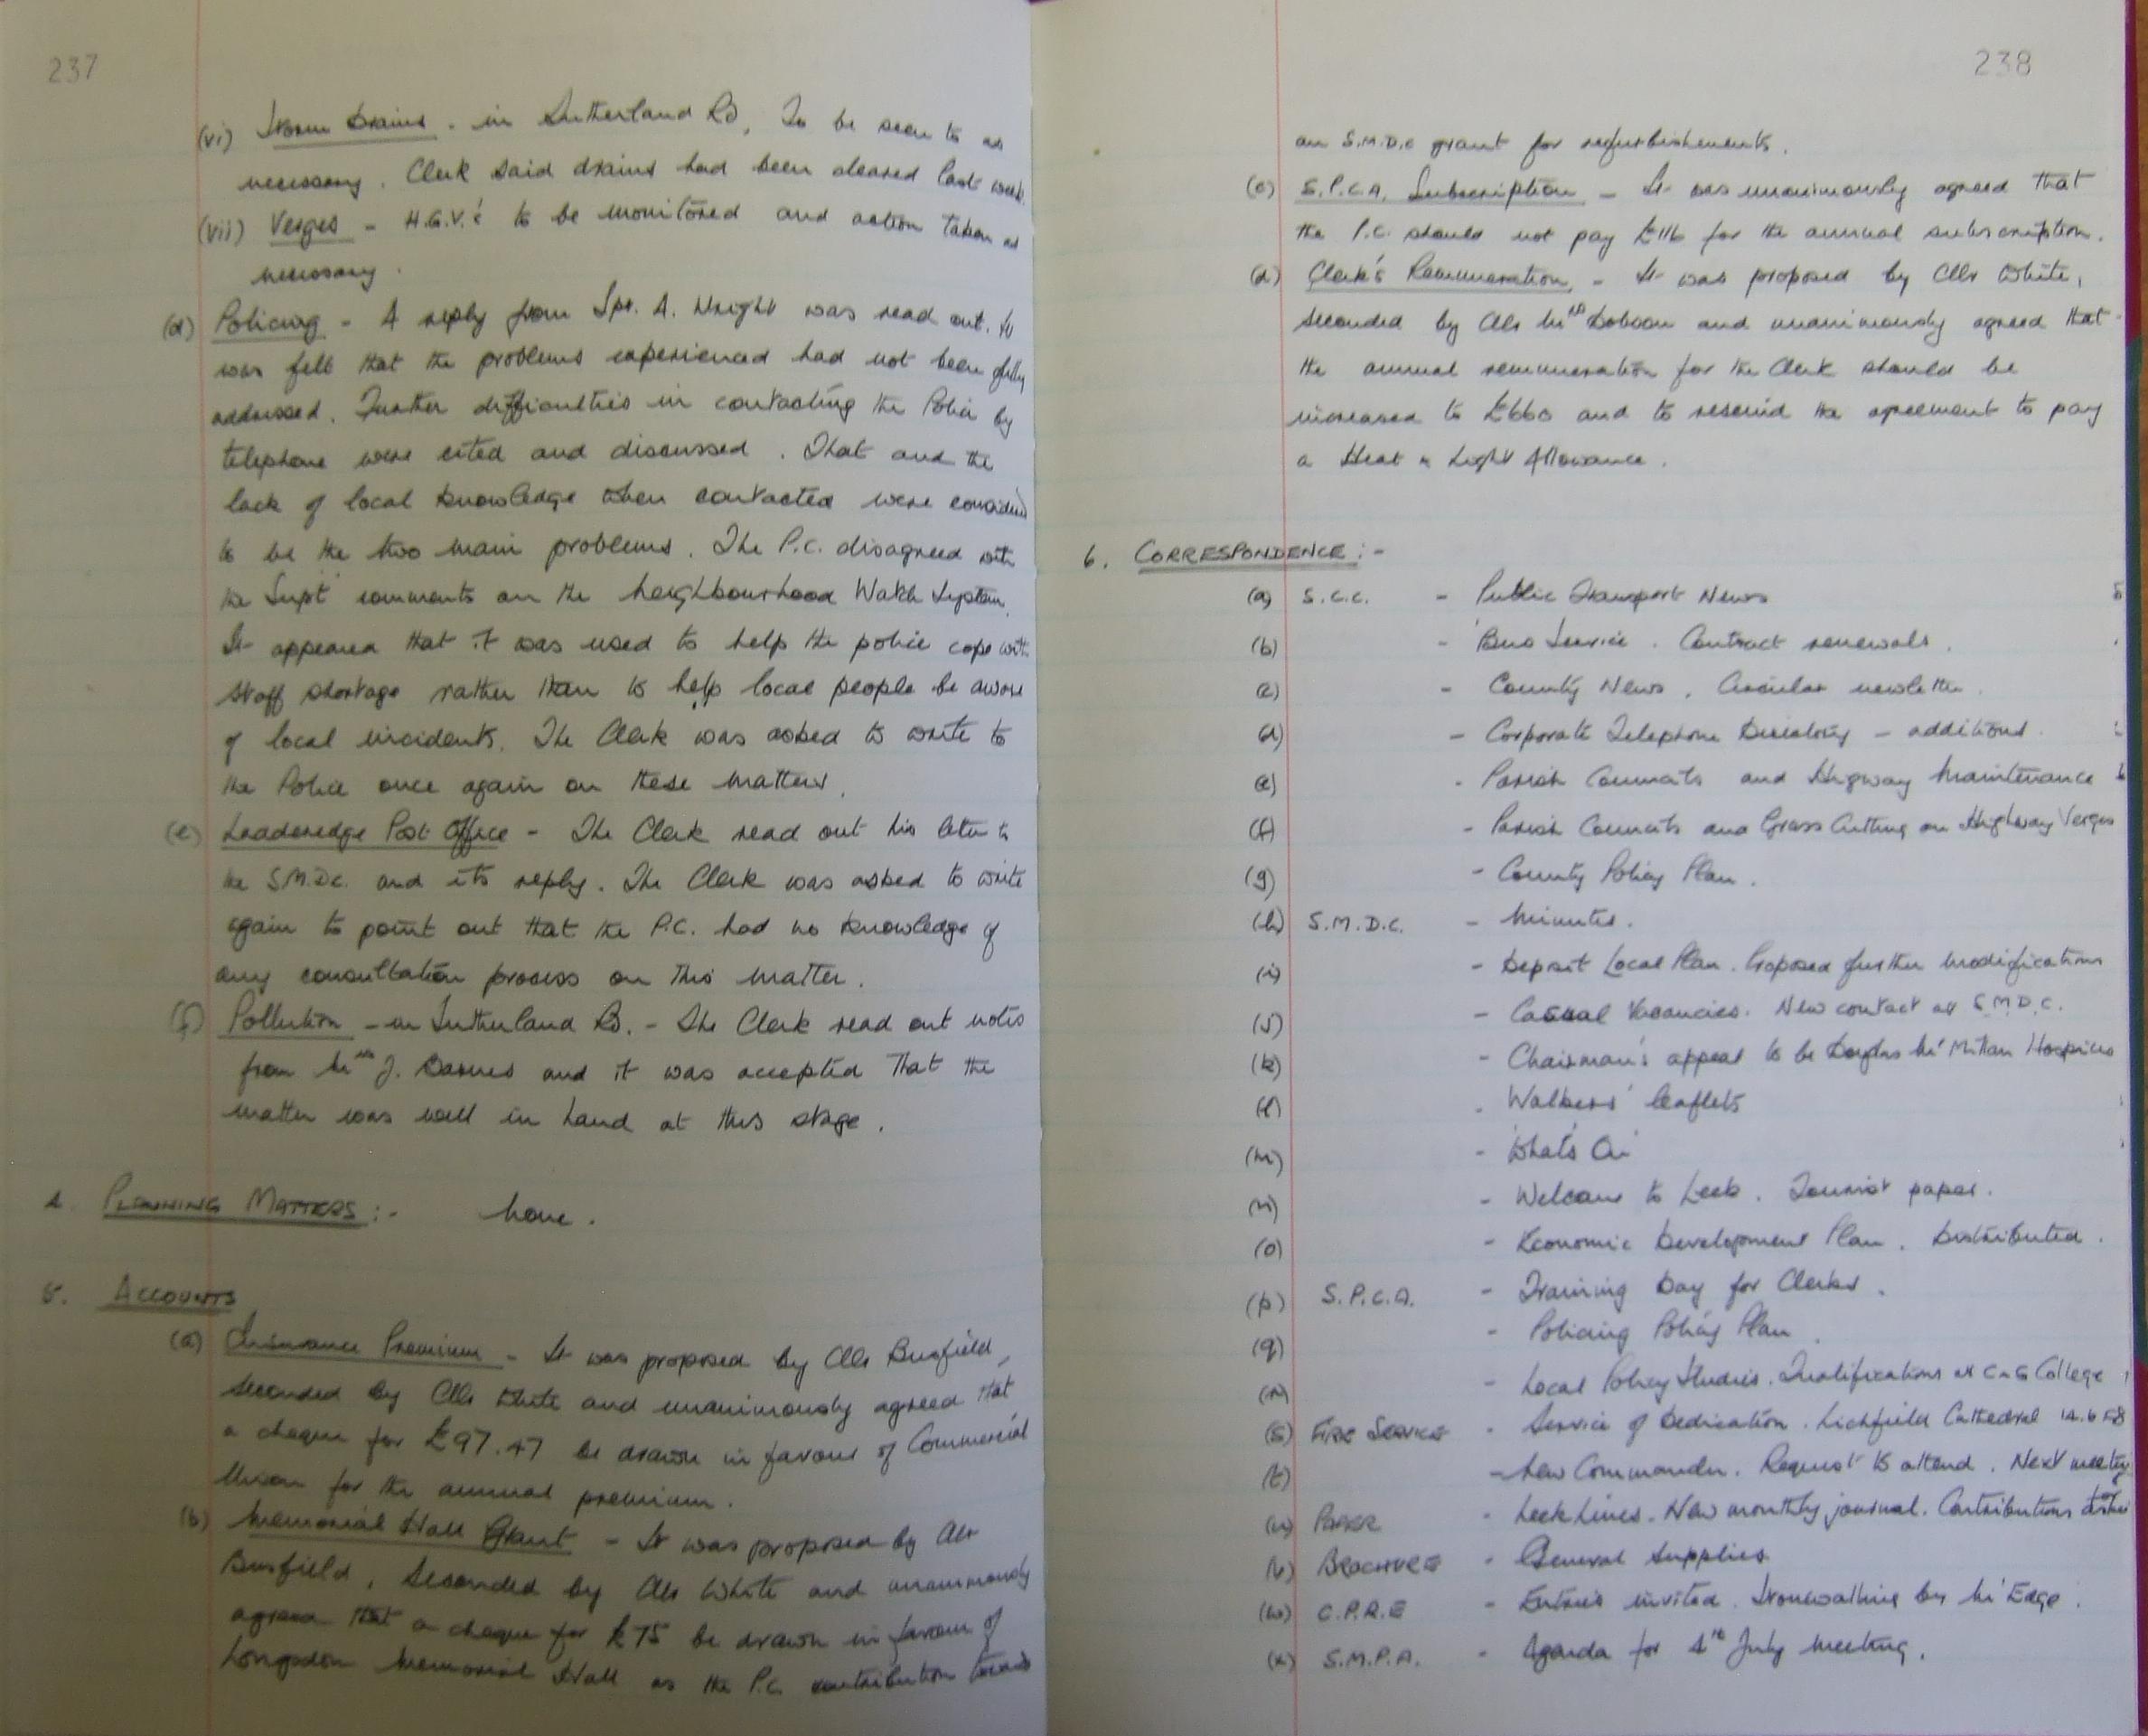 237
(vi) Storm Drains - in Sutherland Rd, To be seen to as
necessary. Clerk said drains had been cleared last week.
(vii) Verges - H.G.V.'s to be monitored and action taken as
necessary.
(d) Policing - A reply from Spt. A. Wright was read out. It
was felt that the problems experienced had not been fully
addressed. Further difficulties in contacting the Police by
telephone were cited and discussed. That and the
lack of local knowledge when contacted were considered
to be the two main problems. The P.C. disagreed with
the Supt comments on the neighbourhood Watch System.
It appeared that it was used to help the police cope with
staff shortage rather than to help local people be aware
of local incidents. The Clerk was asked to write to
the Police once again on these matters.
(e) Leaderedge Post Office - The Clerk read out his letter to
the S.M.D.C. and its reply. The Clerk was asked to write
again to point out that the P.C. had no knowledge of
any consultation process on this matter.
(f) Pollution - in Sutherland Rd. - The Clerk read out notes
from Mrs J. Barnes and it was accepted that the
matter was well in hand at this stage.
4. PLANNING MATTERS :- None.
5. ACCOUNTS
(a) Insurance Premium - It was proposed by Cllr Busfield,
seconded by Cllr White and unanimously agreed that
a cheque for £97.47 be drawn in favour of Commercial
Union for the annual premium.
(b) Memorial Hall Grant - It was proposed by Cllr
Busfield, seconded by Cllr White and unanimously
agreed that a cheque for £75 be drawn in favour of
Longsdon Memorial Hall as the P.C. contribution towards
238
an S.M.D.C grant for refurbishments.
(c) S.P.C.A. Subscription - It was unanimously agreed that
the P.C. should not pay £116 for the annual subscription.
(d) Clerk's Remuneration - It was proposed by Cllr White,
seconded by Cllr Mrs Dobson and unanimously agreed that
the annual remuneration for the Clerk should be
increased to £660 and to rescind the agreement to pay
a Heat & Light Allowance.
6. CORRESPONDENCE :-
(a) S.C.C. - Public Transport News
(b) - Bus Service. Contract renewals.
(c) - County News. Circular newsletter.
(d) - Corporate Telephone Directory - additions.
(e) - Parish Councils and Higway Maintenance
(f) - Parish Councils and Grass Cutting on Highway Verges
(g) - County Policy Plan.
(h) S.M.D.C. - Minutes.
(i) - Deposit Local Plan. Proposed further modifications
(j) - Casual Vacancies. New contact at S.M.D.C.
(k) - Chairman's appeal to be Douglas McMillan Hospice
(l) - Walkers' leaflets
(m) - 'What's On'
(n) - Welcome to Leek. Tourist paper.
(o) - Economic Development Plan. Distributed.
(p) S.P.C.A. - Training Day for Clerks.
(q) - Policing Policy Plan.
(r) - Local Policy Studies. Qualifications at C & G College
(s) FIRE SERVICE - Service of Dedication. Lichfield Cathedral 14.6.98
(t) - New Commander. Request to attend. Next meeting
(u) PAPER - Leek Lines. New monthly journal. Contributions
(v) BROCHURE - General Supplies
(w) C.P.R.E - Entries invited. Stonewalling by Mr Edge.
(x) S.M.P.A. - Agenda for 4th July Meeting.